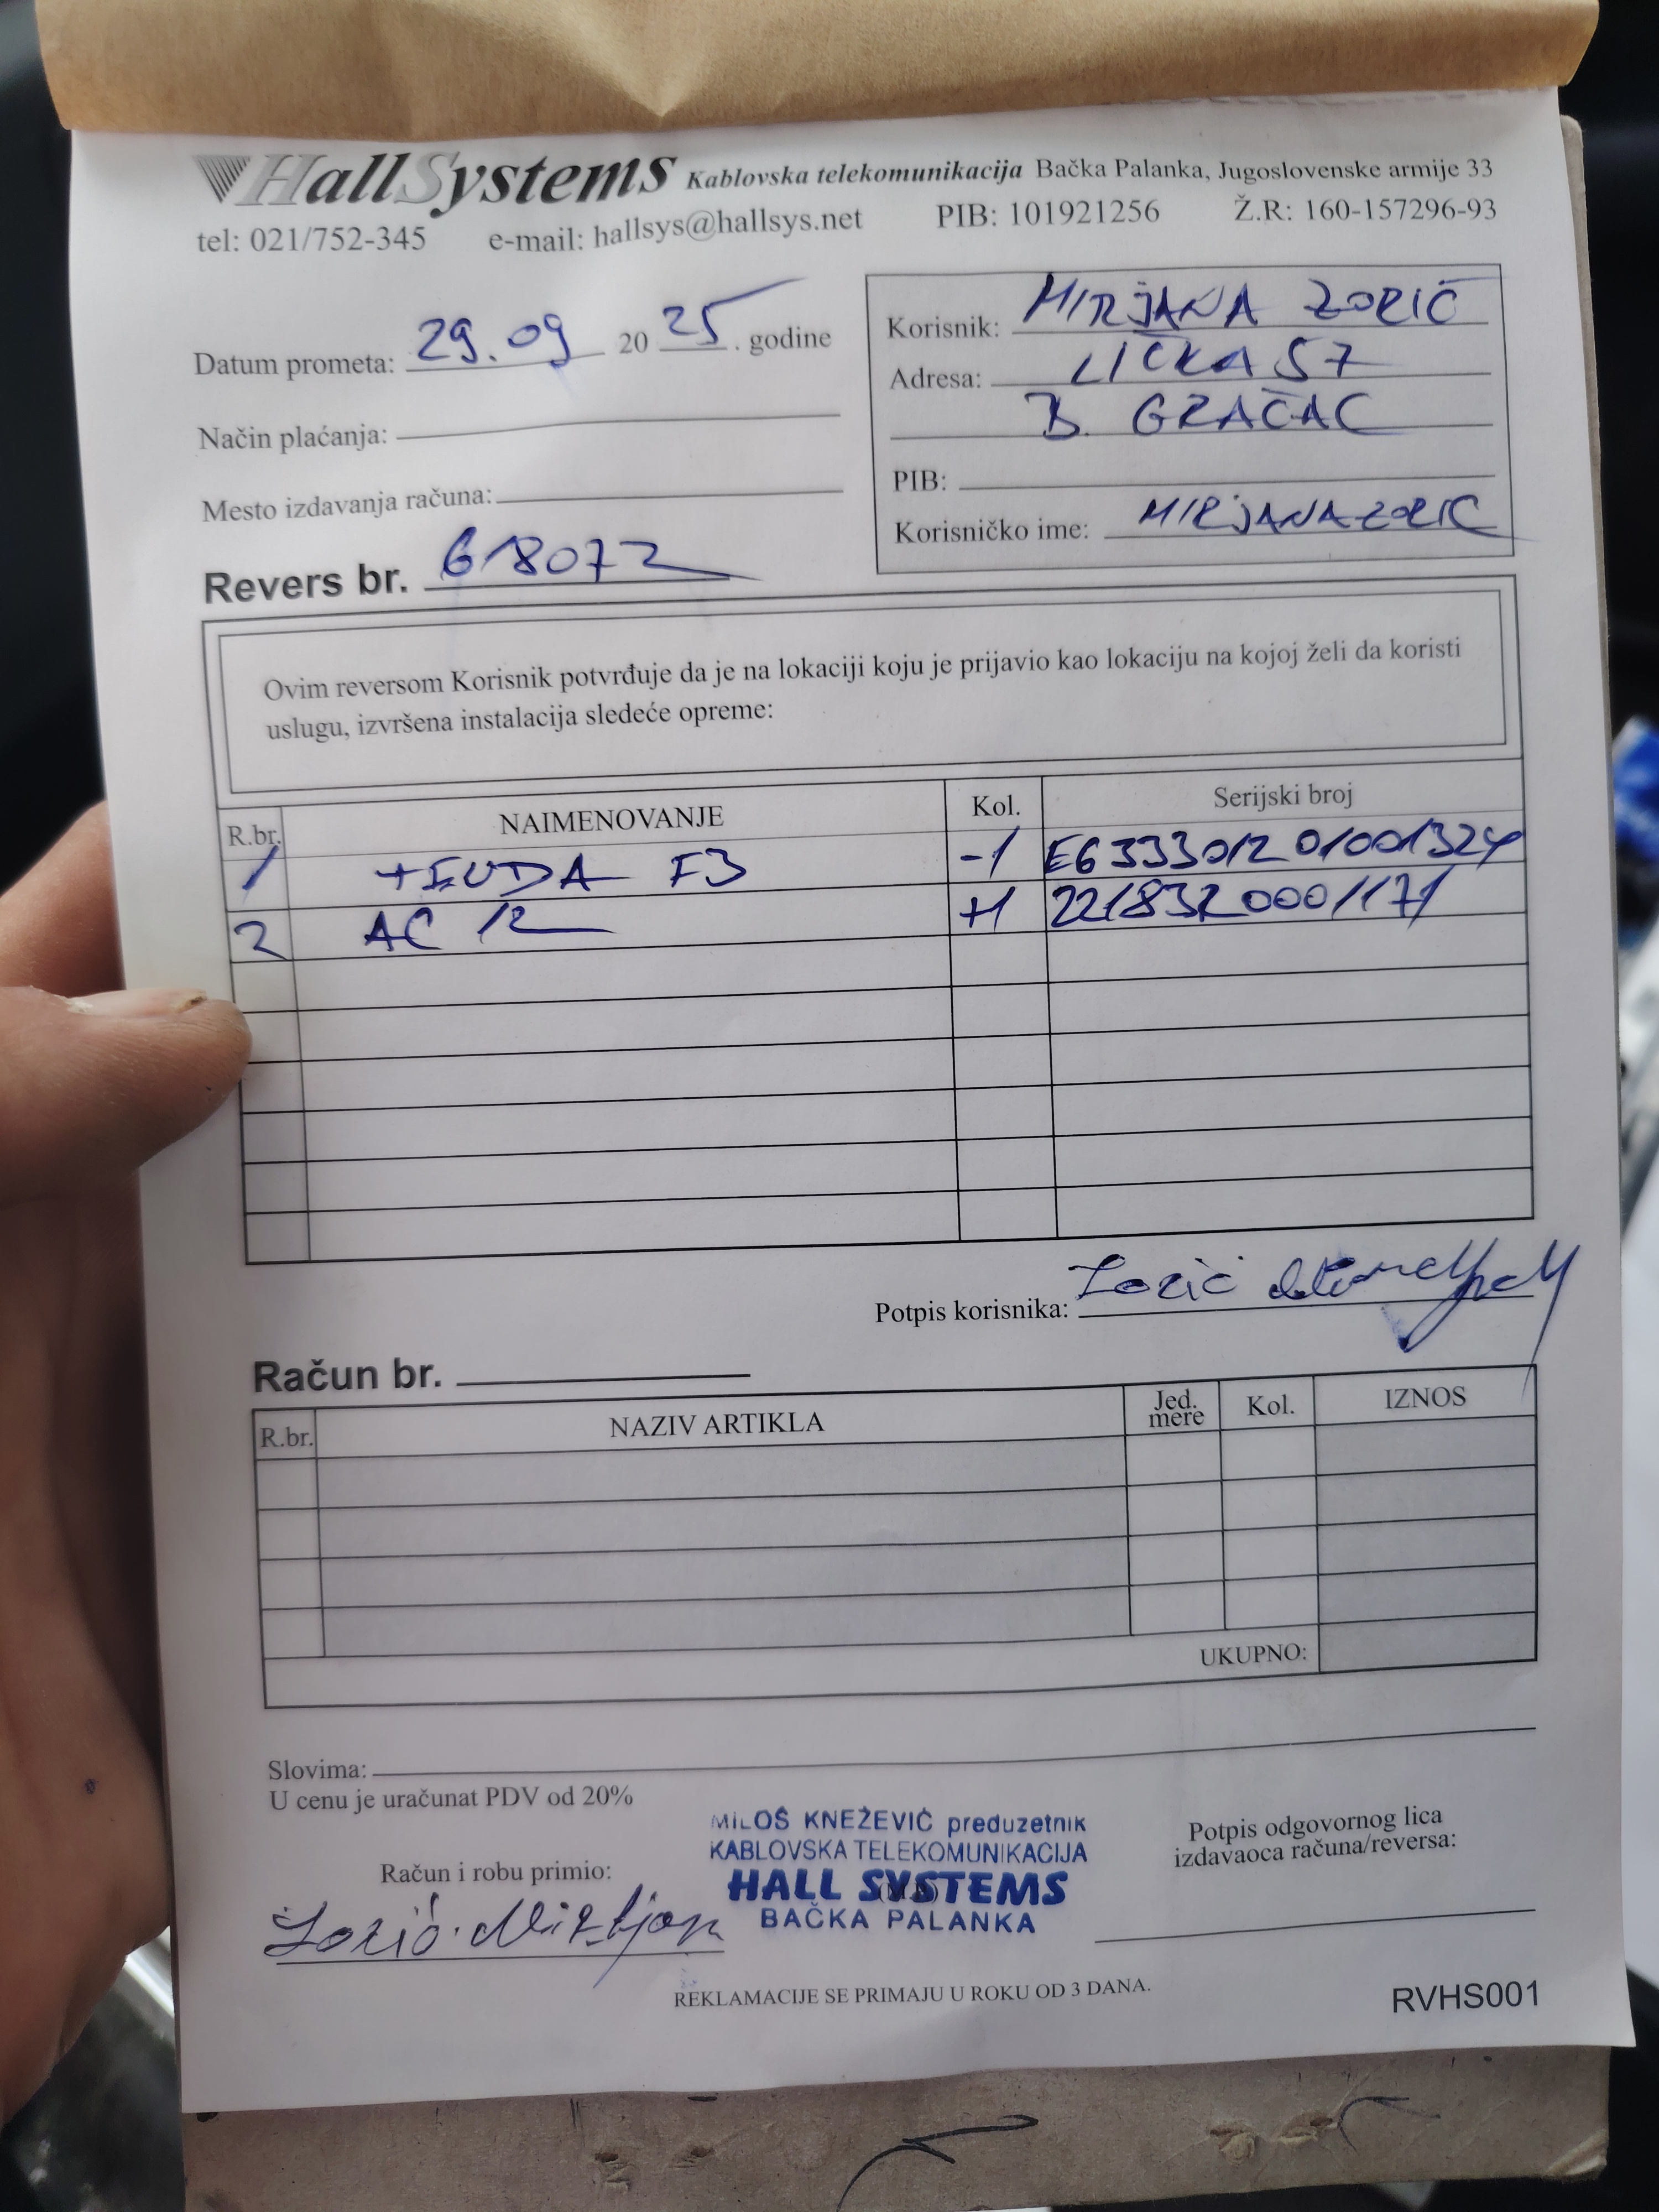 HallSystems Kablovska telekomunikacija Bačka Palanka, Jugoslovenske armije 33
tel: 021/752-345 e-mail: hallsys@hallsys.net PIB: 101921256 Ž.R: 160-157296-93
Datum prometa: 29.09 2025. godine
Način plaćanja:
Mesto izdavanja računa:
Revers br. 618072
Korisnik: MIRJANA ZORIĆ
Adresa: LIČKA 57
B. GRAČAC
PIB:
Korisničko ime: MIRJANAZORIC
Ovim reversom Korisnik potvrđuje da je na lokaciji koju je prijavio kao lokaciju na kojoj želi da koristi
uslugu, izvršena instalacija sledeće opreme:
R.br. NAIMENOVANJE Kol. Serijski broj
1 TENDA F3 -1 E633301201001324
2 AC 12 +1 2218320001171
Potpis korisnika: Zorić
Račun br.
R.br. NAZIV ARTIKLA Jed. mere Kol. IZNOS
UKUPNO:
Slovima:
U cenu je uračunat PDV od 20%
Račun i robu primio:
Zorić Mirjana
MILOŠ KNEŽEVIĆ preduzetnik
KABLOVSKA TELEKOMUNIKACIJA
HALL SYSTEMS
BAČKA PALANKA
Potpis odgovornog lica
izdavaoca računa/reversa:
REKLAMACIJE SE PRIMAJU U ROKU OD 3 DANA.
RVHS001